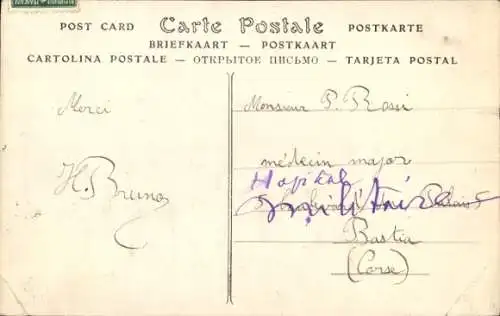 POST CARD Carte Postale POSTKARTE
BRIEFKAART — POSTKAART
CARTOLINA POSTALE — ОТКРЫТОЕ ПИСЬМО — TARJETA POSTAL
Merci
H. Bruno
Monsieur P. Rossi
médecin major
Hopital
militaire
Palais
Bastia
(Corse)